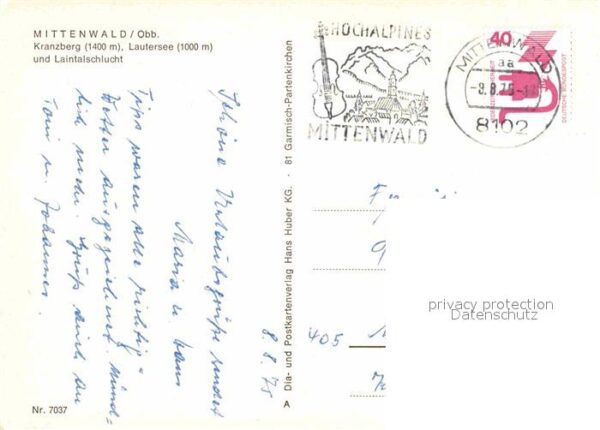 MITTENWALD / Obb.
Kranzberg (1400 m), Lautersee (1000 m)
und Laintalschlucht
HOCHALPINES
MITTENWALD
MITTENWALD
aa
-9.8.75-
8102
40
DEUTSCHE BUNDESPOST
8.8.75
Schöne Urlaubsgrüße sendet
Maria u. Hans
Tips waren alle richtig -
Wetter ausgezeichnet. Münd-
lich mehr. Gruß auch an
Toni u. Johannes.
Dia- und Postkartenverlag Hans Huber KG. · 81 Garmisch-Partenkirchen
A
405
privacy protection
Datenschutz
Nr. 7037